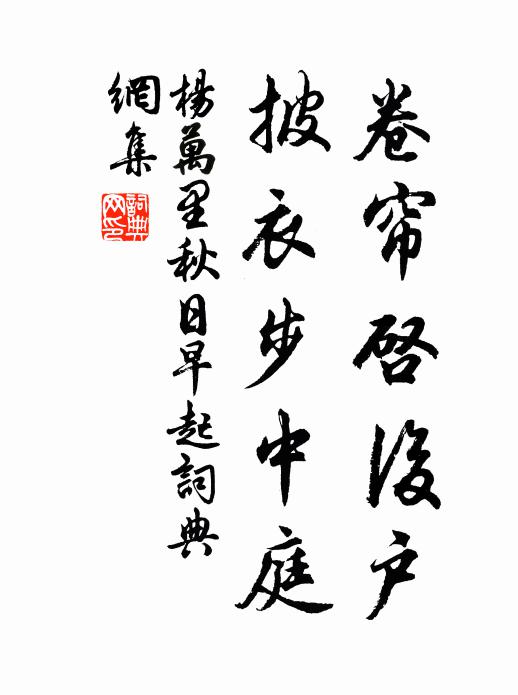 卷帘啓後戶
披衣步中庭
楊萬里秋日早起詞典
網集
詞典網印